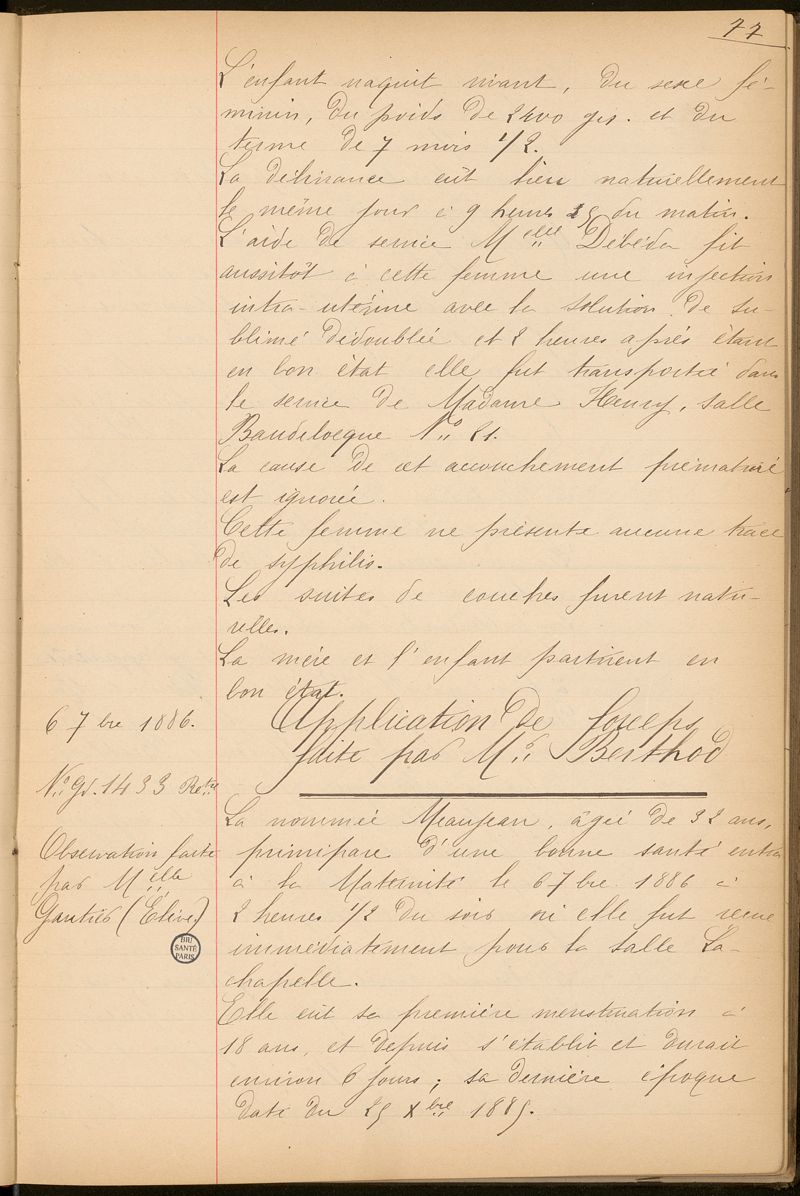 77
L'enfant naquit vivant, du sexe fé-
minin, du poids de 2400 grs. et du
terme de 7 mois 1/2.
La délivrance eût lieu naturellement
le même jour à 9 heures 25 du matin.
L'aide de service Melle Débéda fit
aussitôt à cette femme une injection
intra-utérine avec la solution de su-
blimé dédoublée et 2 heures après étant
en bon état elle fut transportée dans
le service de Madame Henry, salle
Baudelocque No 21.
La cause de cet accouchement prématuré
est ignorée.
Cette femme ne présente aucune trace
de syphilis.
Les suites de couches furent natu-
relles.
La mère et l'enfant partirent en
bon état.
6 7bre 1886.
Application de forceps
faite par Mr Berthod
No Gl. 1433 Retre
Observation faite
par Melle
Gautier (Elève)
BIU
SANTÉ
PARIS
La nommée Meaujean, âgée de 32 ans,
primipare d'une bonne santé entra
à la Maternité le 6 7bre 1886 à
2 heures 1/2 du soir où elle fut reçue
immédiatement pour la salle La-
chapelle.
Elle eût sa première menstruation à
18 ans, et depuis s'établit et durait
environ 6 jours; sa dernière époque
date du 25 Xbre 1885.